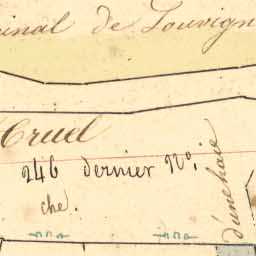 inal de Louvign
Cruel
246 dernier No.
che.
d'une haie